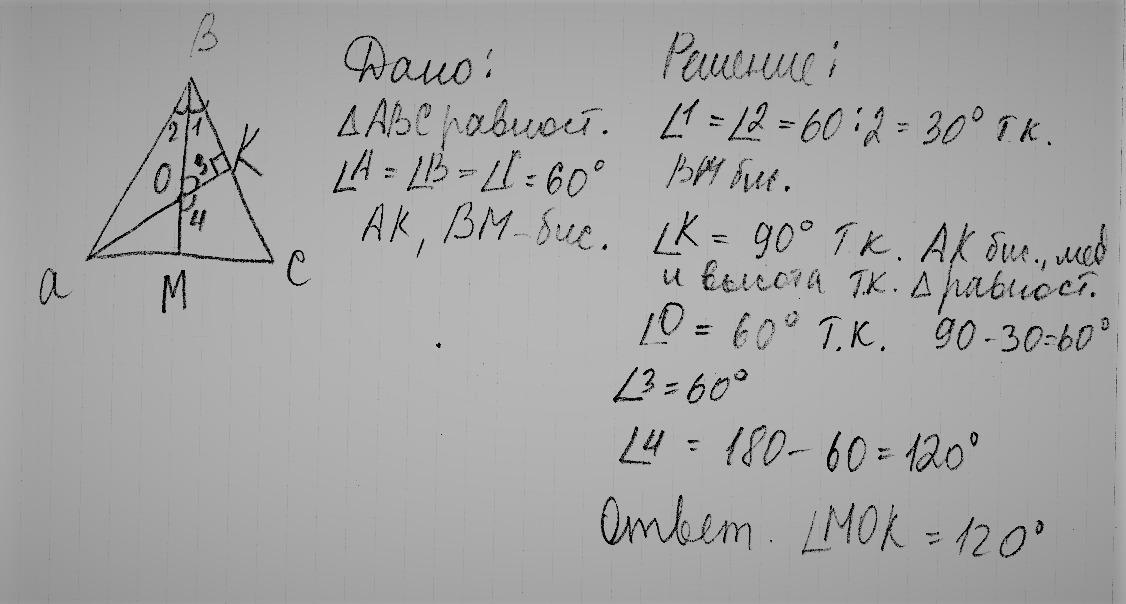 B
2 1
K
O 3
4
a
M
C
Дано:
∆ABC равност.
∠A = ∠B = ∠C = 60°
AK, BM - бис.
Решение:
∠1 = ∠2 = 60 : 2 = 30° т.к.
BM бис.
∠K = 90° т.к. AK бис., мед
и высота т.к. ∆ равност.
∠O = 60° т.к. 90 - 30 = 60°
∠3 = 60°
∠4 = 180 - 60 = 120°
Ответ. ∠MOK = 120°